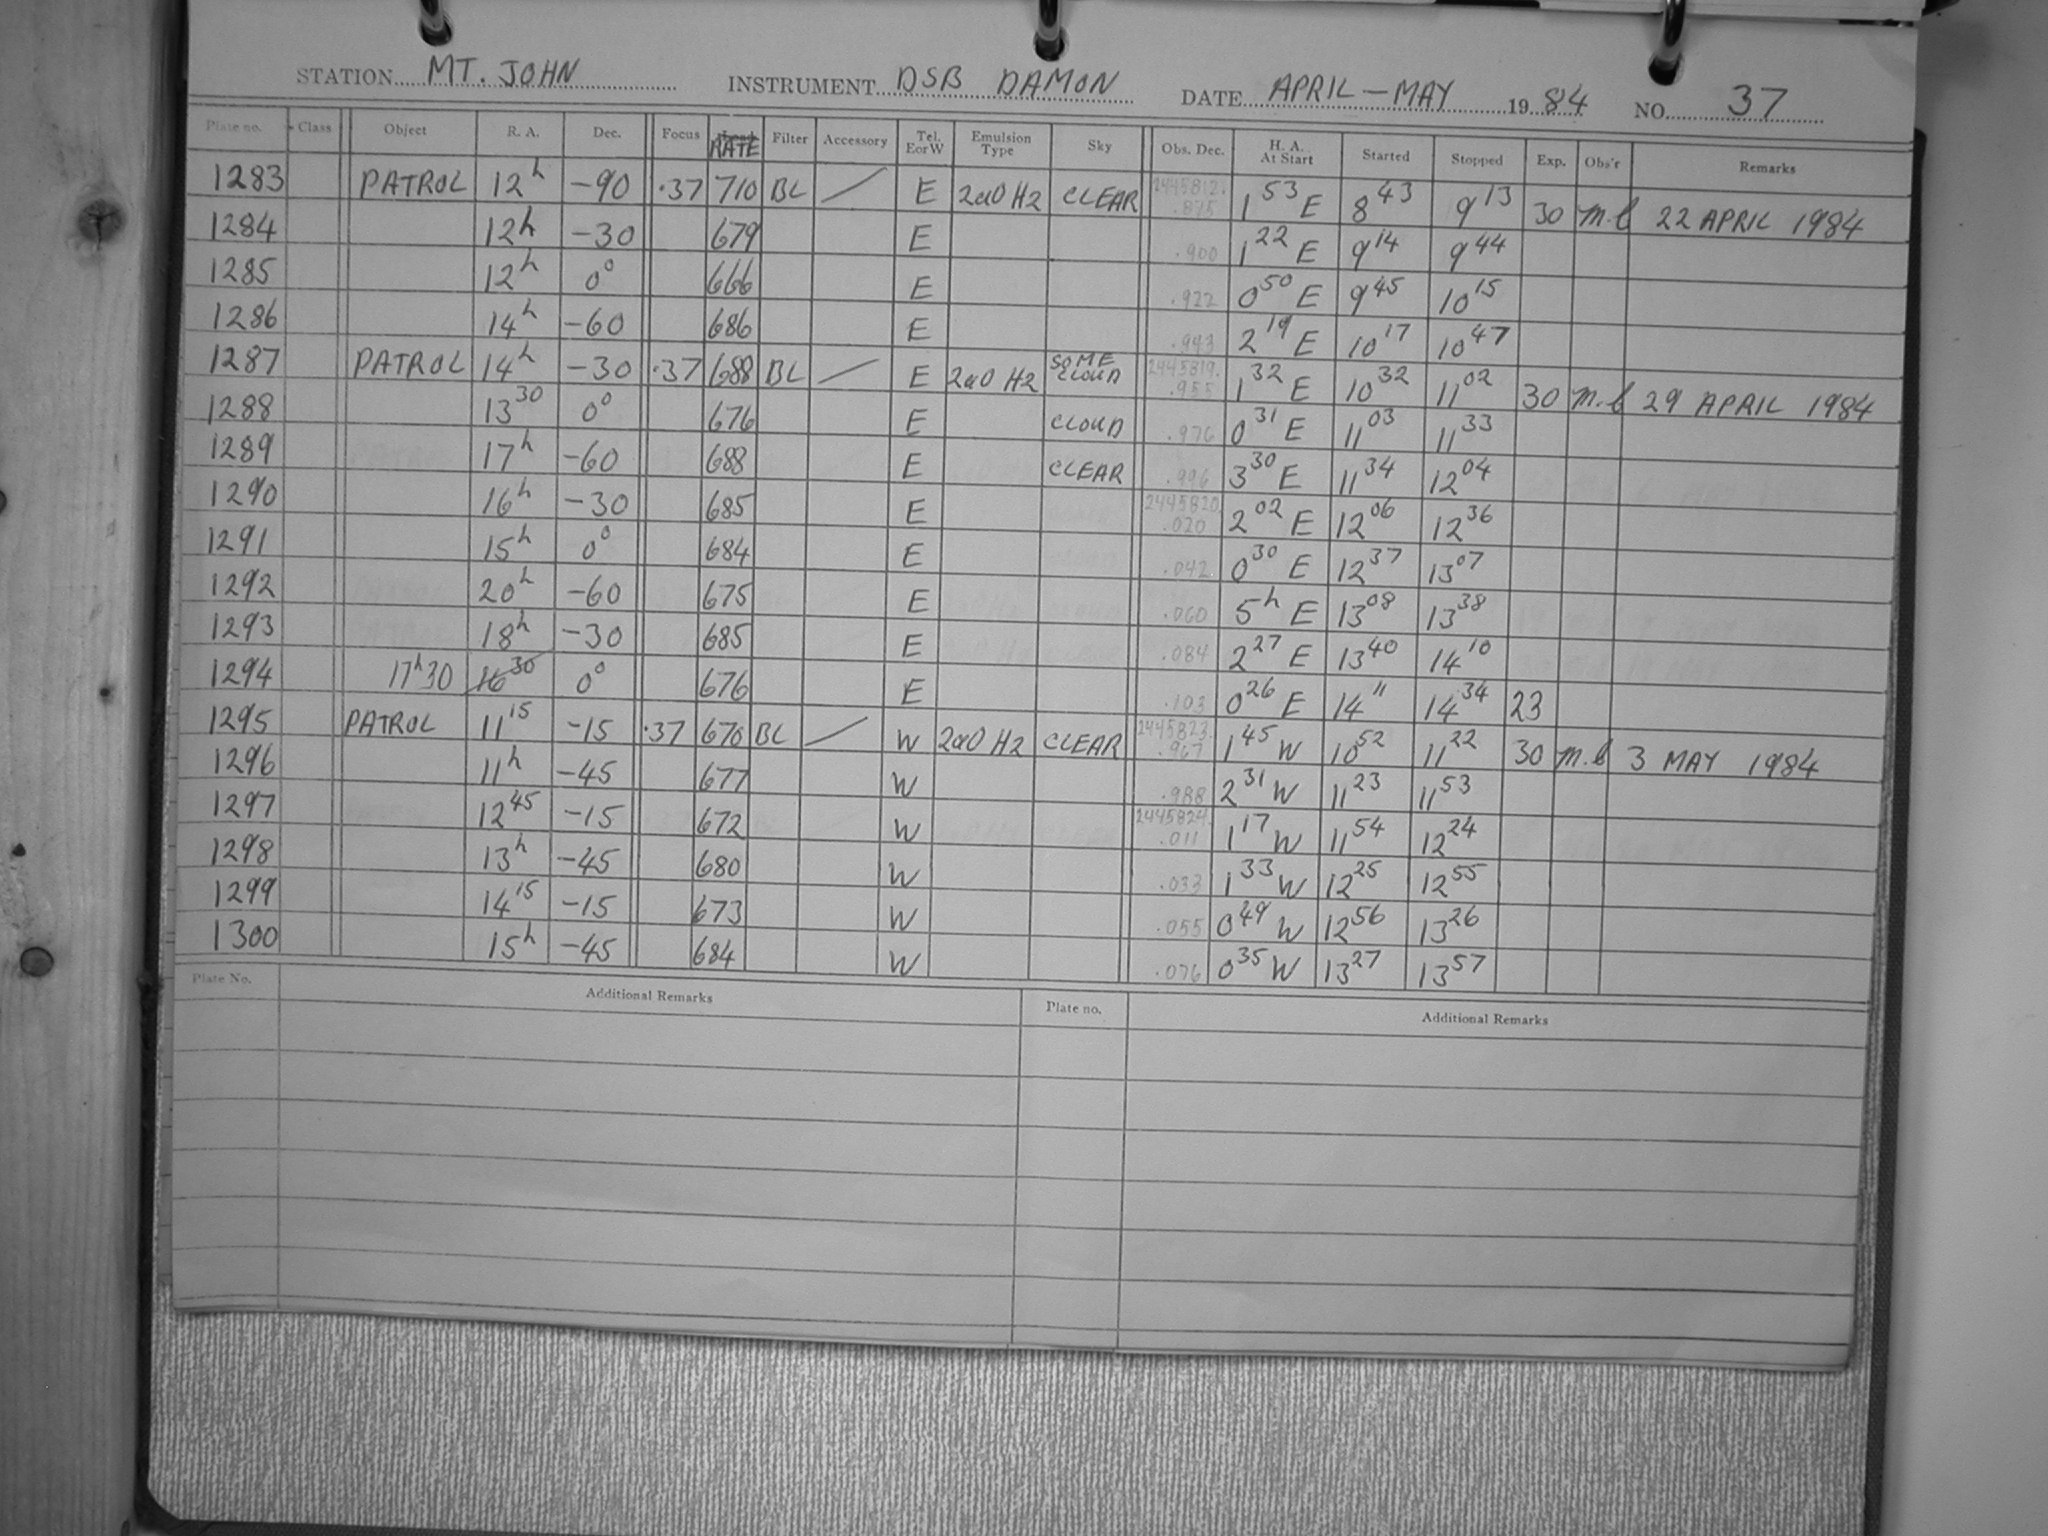 STATION MT. JOHN INSTRUMENT DSB DAMON DATE APRIL-MAY 1984 NO. 37
Plate no. Class Object R. A. Dec. Focus RATE Filter Accessory Tel. EorW Emulsion Type Sky Obs. Dec. H. A. At Start Started Stopped Exp. Obs'r Remarks
1283 PATROL 12h -90 .37 710 BL / E 2aO H2 CLEAR 2445812. .875 1 53 E 8 43 9 13 30 m.c 22 APRIL 1984
1284 12h -30 679 E .900 1 22 E 9 14 9 44
1285 12h 0° 666 E .922 0 50 E 9 45 10 15
1286 14h -60 686 E .943 2 19 E 10 17 10 47
1287 PATROL 14h -30 .37 688 BL / E 2aO H2 SOME CLOUD 2445819. .955 1 32 E 10 32 11 02 30 m.c 29 APRIL 1984
1288 13 30 0° 676 E CLOUD .976 0 31 E 11 03 11 33
1289 17h -60 688 E CLEAR .996 3 30 E 11 34 12 04
1290 16h -30 685 E 2445820. .020 2 02 E 12 06 12 36
1291 15h 0° 684 E .042 0 30 E 12 37 13 07
1292 20h -60 675 E .060 5h E 13 08 13 38
1293 18h -30 685 E .084 2 27 E 13 40 14 10
1294 17h30 16 30 0° 676 E .103 0 26 E 14 11 14 34 23
1295 PATROL 11 15 -15 .37 670 BL / W 2aO H2 CLEAR 2445823. .967 1 45 W 10 52 11 22 30 m.c 3 MAY 1984
1296 11h -45 677 W .988 2 31 W 11 23 11 53
1297 12 45 -15 672 W 2445824. .011 1 17 W 11 54 12 24
1298 13h -45 680 W .033 1 33 W 12 25 12 55
1299 14 15 -15 673 W .055 0 49 W 12 56 13 26
1300 15h -45 684 W .076 0 35 W 13 27 13 57
Plate No. Additional Remarks Plate no. Additional Remarks